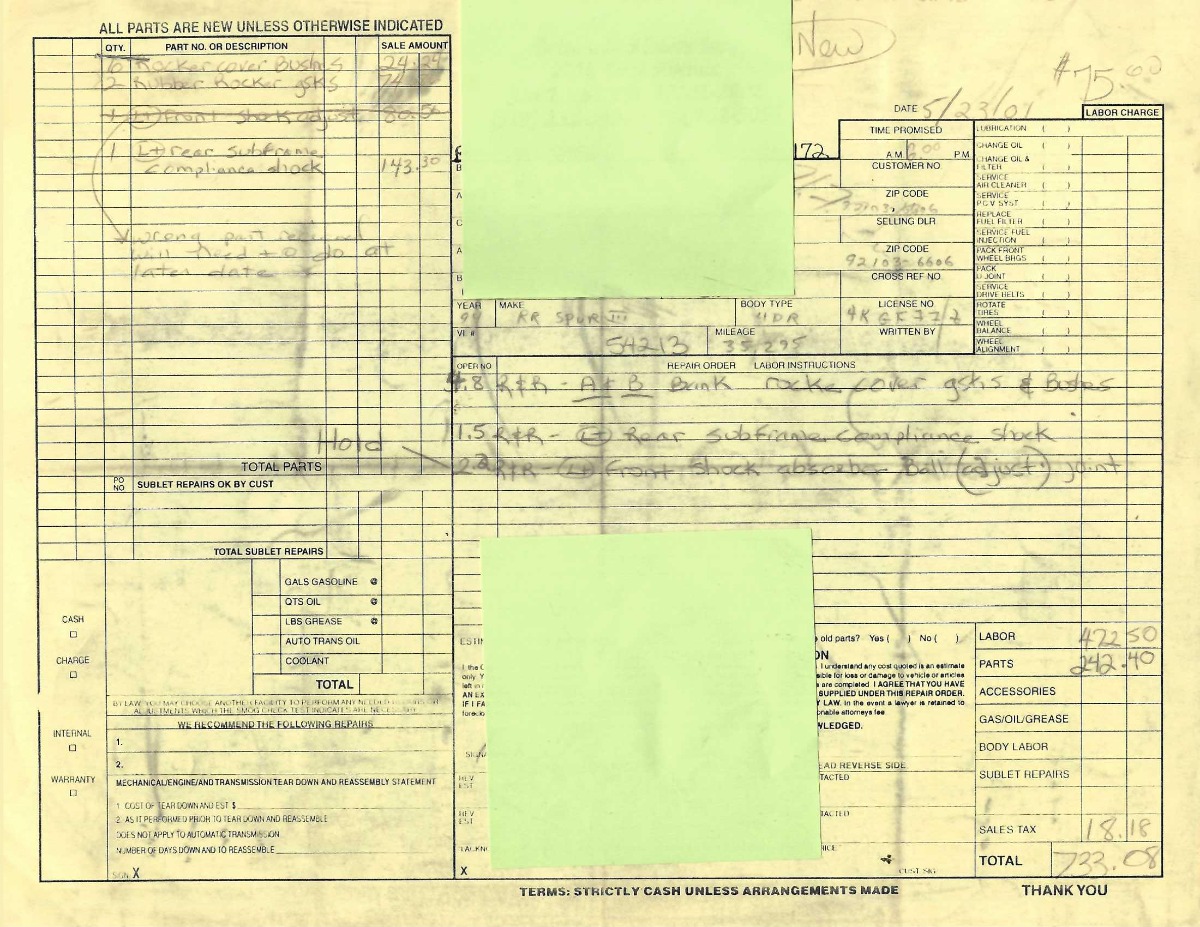 ALL PARTS ARE NEW UNLESS OTHERWISE INDICATED
QTY. PART NO. OR DESCRIPTION SALE AMOUNT
6 Rocker cover Bushs 24.24
2 Rubber Rocker gsks 74
1 (Lt) Front shock adjust 80.50
1 Lt rear subframe
compliance shock 143.30
wrong part received
will need to do at
later date
Hold
TOTAL PARTS
PO NO SUBLET REPAIRS OK BY CUST
TOTAL SUBLET REPAIRS
GALS GASOLINE @
QTS OIL @
LBS GREASE @
AUTO TRANS OIL
COOLANT
TOTAL
CASH
CHARGE
INTERNAL
WARRANTY
BY LAW, YOU MAY CHOOSE ANOTHER FACILITY TO PERFORM ANY NEEDED REPAIRS OR
ADJUSTMENTS WHICH THE SMOG CHECK TEST INDICATES ARE NECESSARY
WE RECOMMEND THE FOLLOWING REPAIRS
1.
2.
MECHANICAL/ENGINE/AND TRANSMISSION TEAR DOWN AND REASSEMBLY STATEMENT
1 COST OF TEAR DOWN AND EST $
2. AS IT PERFORMED PRIOR TO TEAR DOWN AND REASSEMBLE
DOES NOT APPLY TO AUTOMATIC TRANSMISSION
NUMBER OF DAYS DOWN AND TO REASSEMBLE
SIGN X
New
$75.00
DATE 5/23/01
LABOR CHARGE
172
TIME PROMISED
A.M. P.M.
CUSTOMER NO.
ZIP CODE
SELLING DLR
ZIP CODE
92103-6606
CROSS REF NO.
LUBRICATION ( )
CHANGE OIL ( )
CHANGE OIL & FILTER ( )
SERVICE AIR CLEANER ( )
SERVICE P.C.V SYST ( )
REPLACE FUEL FILTER ( )
SERVICE FUEL INJECTION ( )
PACK FRONT WHEEL BRGS ( )
PACK U JOINT ( )
SERVICE DRIVE BELTS ( )
ROTATE TIRES ( )
WHEEL BALANCE ( )
WHEEL ALIGNMENT ( )
YEAR MAKE BODY TYPE LICENSE NO
94 RR SPUR III 4DR
MILEAGE WRITTEN BY
54213 35,295
OPER NO REPAIR ORDER LABOR INSTRUCTIONS
4.8 R&R - A & B Bank rocker cover gsks & Bushes
1.5 R&R - (Lt) Rear subframe compliance shock
2.2 R&R - (Lt) Front shock absorber Ball (adjust) joint
old parts? Yes ( ) No ( )
ON
I understand any cost quoted is an estimate
sible for loss or damage to vehicle or articles
s are completed I AGREE THAT YOU HAVE
SUPPLIED UNDER THIS REPAIR ORDER.
Y LAW. In the event a lawyer is retained to
onable attorneys fee
WLEDGED.
EAD REVERSE SIDE
TACTED
TACTED
REV EST
REV EST
X
CUST SIG
LABOR 472 50
PARTS 242.40
ACCESSORIES
GAS/OIL/GREASE
BODY LABOR
SUBLET REPAIRS
SALES TAX 18.18
TOTAL 733.08
TERMS: STRICTLY CASH UNLESS ARRANGEMENTS MADE THANK YOU